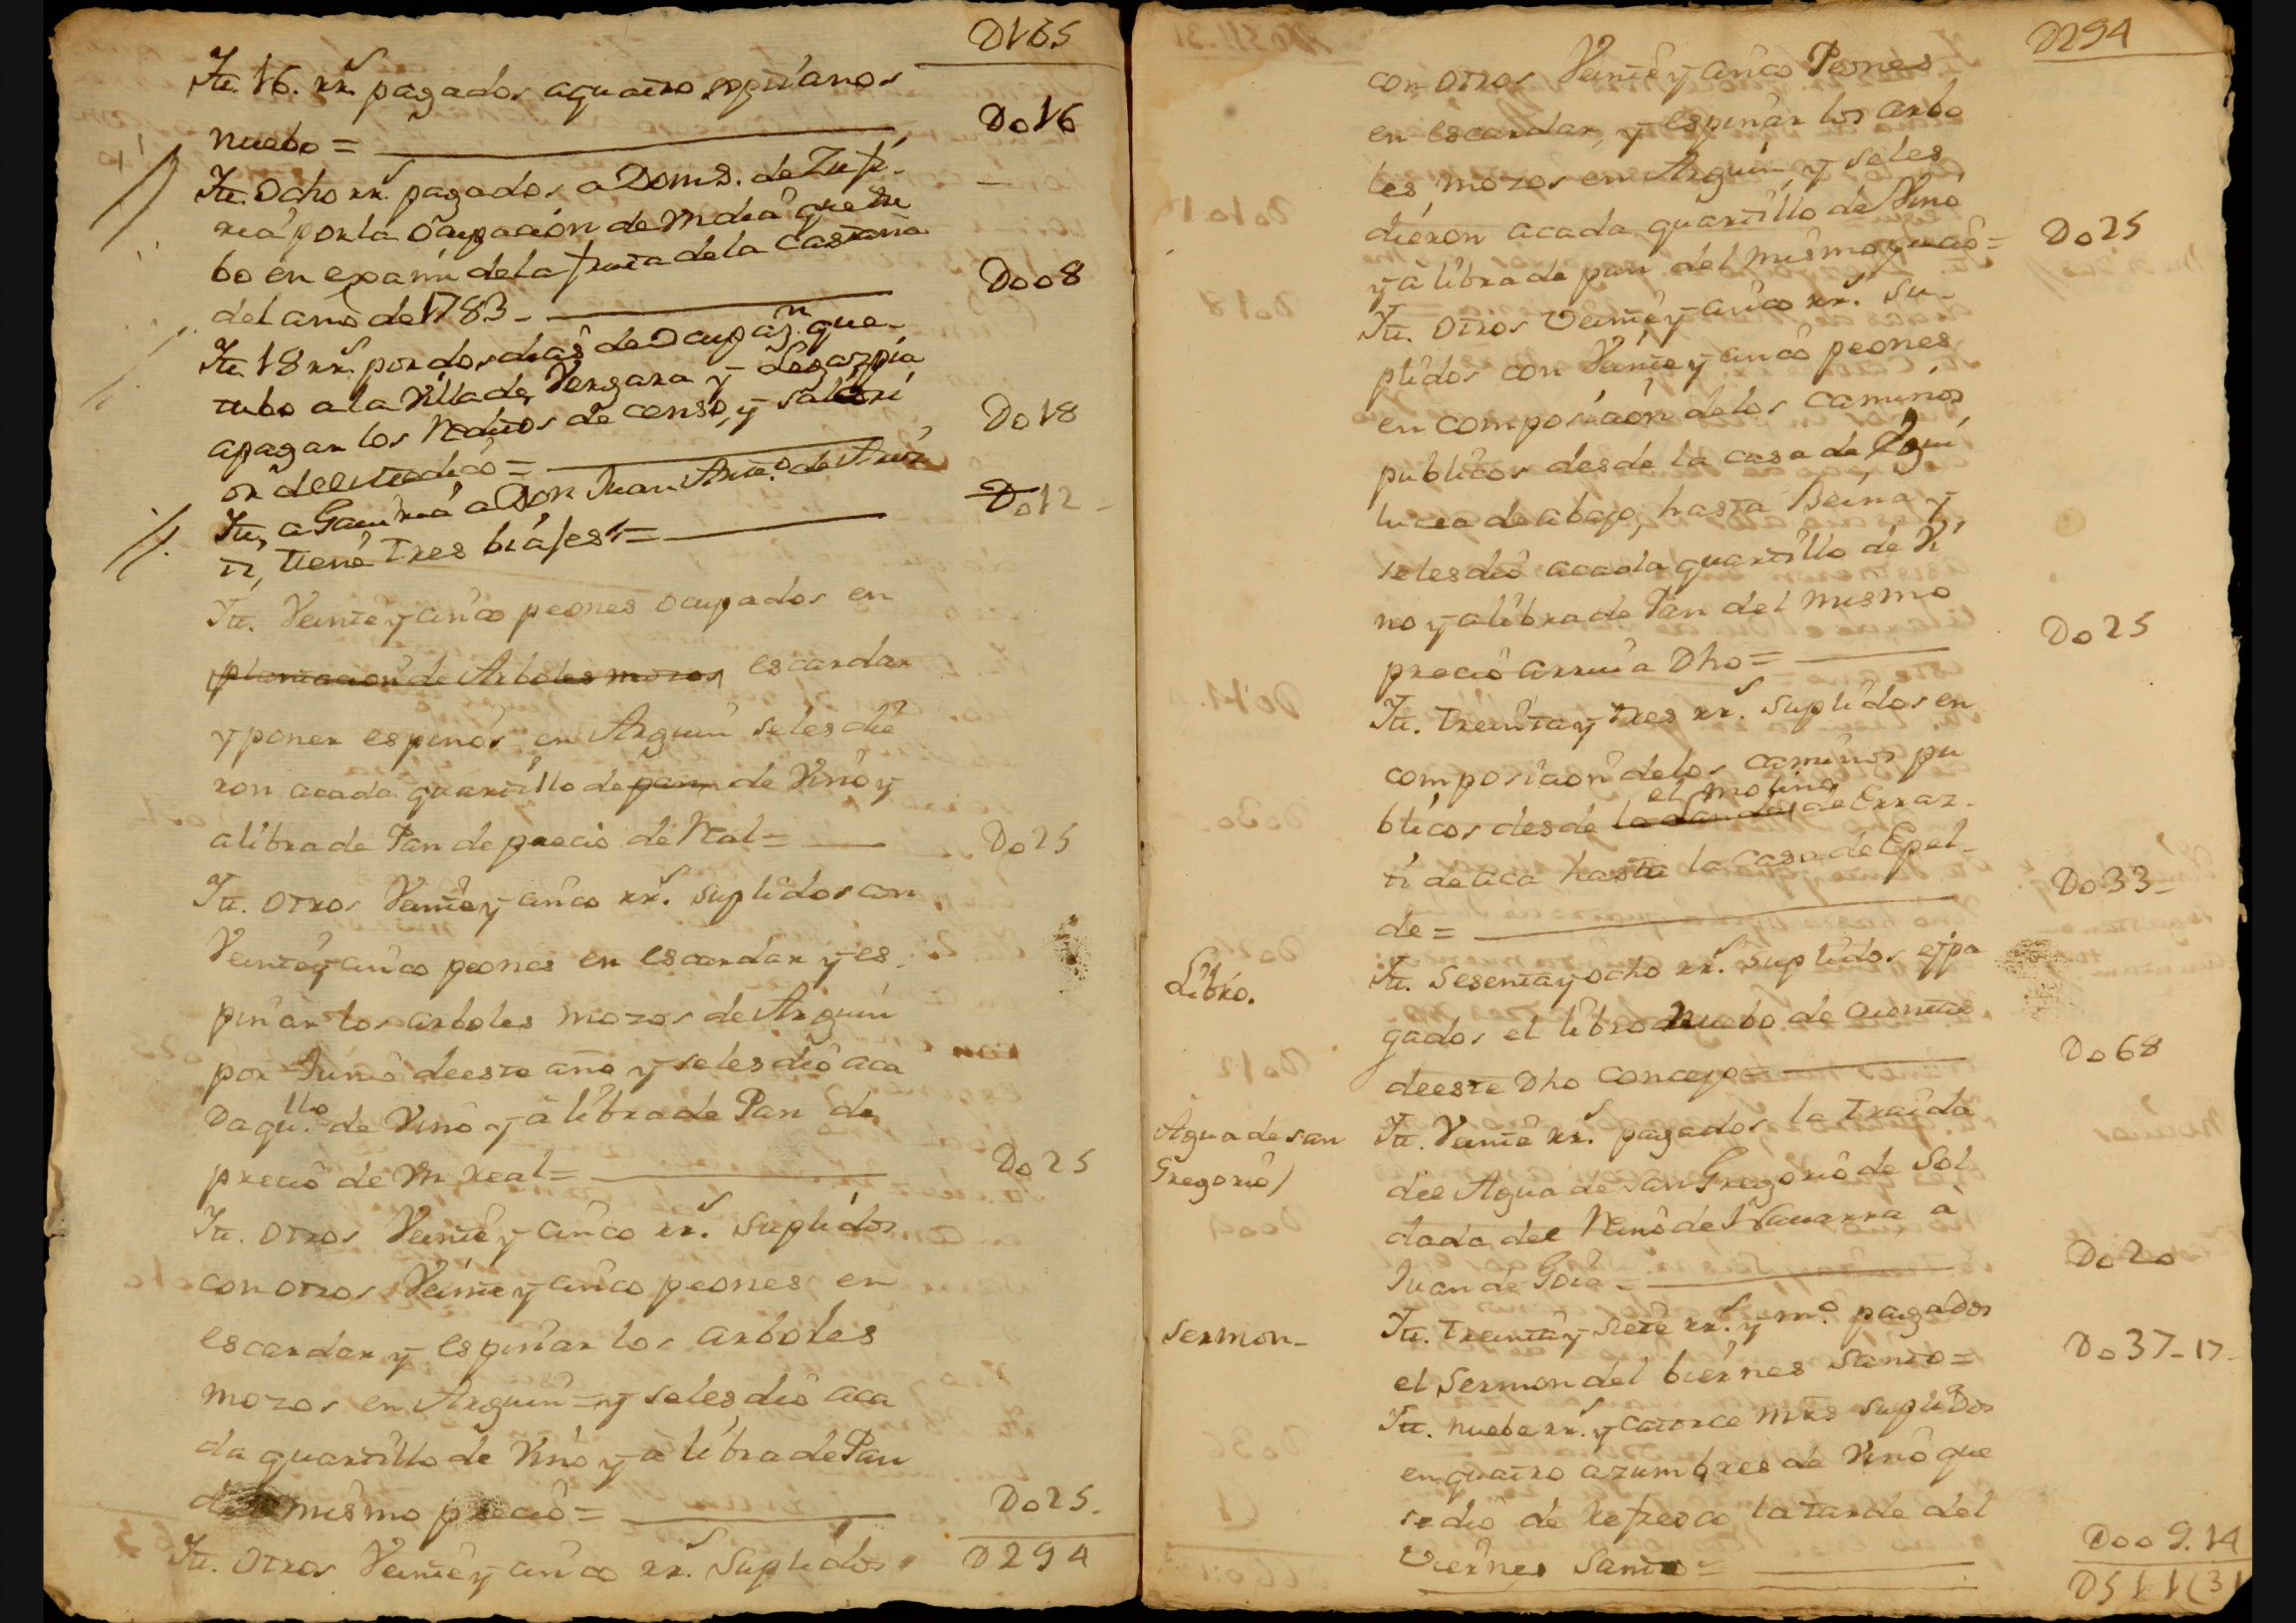 D165
Itt. 16. rr.s pagados aquatro
nuebo = D016
Itt. Ocho rr.s pagados a Doms. de
ria por la Ocupación de Vn dia que tu
bo en exami de la fruta de la Castaña
del año de 1783 - D008
Itt. 18 rr.s por dos dias de Ocupaz.n que
tubo a la Villa de Vergara y Legazpia
apagar los Reditos de censo, y
D018
Itt, a Gaviria a Don Juan Anto. de
ti, tiene tres biajes = D012 -
Itt. Veinte y cinco peones ocupados en
plantacion de Arboles mozos escardar
y poner espinos en Arguin seles die
ron acada quartillo de pan de Vino y
alibra de Pan de precio de Real = D025
Itt. otros Veinte y cinco rr.s suplidos con
Veinte y cinco peones en escardar y es
pinar los arboles mozos de Arguin
por Junio de este año y seles dio aca
Da qu.llo de Vino y à libra de Pan de
precio de Vn real = D025
Itt. otros Veinte y cinco rr.s suplidos
con otros Veinte y cinco peones en
escardar y espinar los arboles
mozos en Arguin = y seles dio aca
da quartillo de Vino y à libra de Pan
del mismo precio = D025-
Itt. otros Veinte y cinco rr.s suplidos D294
D294
con otros Veinte y cinco Peones
en escardar, y espinar los arbo
les mozos en Arguin y seles
dieron acada quartillo de Vino
y à libra de pan del mismo precio = D025
Itt. otros Veinte y cinco rr.s su-
plidos con Veinte y cinco peones
en composicion de los caminos
publicos desde la casa de Egui
lucea de abajo, hasta Beina y
seles dio acada quartillo de Vi
no y alibra de Pan del mismo
precio arriua Dho = D025
Itt. treinta y tres rr.s suplidos en
composicion de los caminos pu
el molino
blicos desde de Erraz-
ti de aca hasta la Casa de Epel-
de = D033-
Libro.
Itt. Sesenta y ocho rr.s suplidos e pa
gados el libro Nuebo de cuentas
de este Dho Concejo = D068
Agua de san
Gregorio)
Itt. Veinte rr.s pagados la traida
del Agua de San Gregorio de Sol
dada del Reino de Nauarra à
Juan de Goia = D020
Sermon-
Itt. treinta y siete rr.s y m.o pagados
el Sermon del biernes Santo = D037-17-
Itt. nuebe rr.s y catorce mrs suplidos
en quatro azumbres de Vino que
se dio de refresco la tarde del
Viernes Santo = D009.14
D511(31